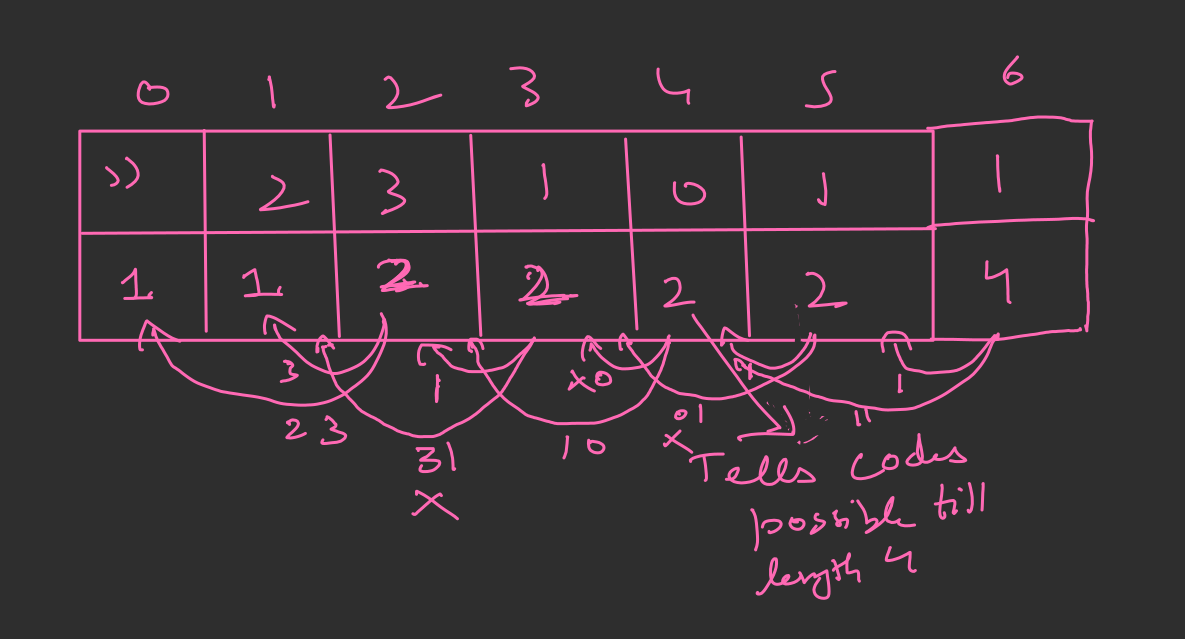 0 1 2 3 4 5 6
" 2 3 1 0 1 1
1 1 2 2 2 2 4
3 1 x0 1
23 10 01 11
31 x
x
Tells codes
possible till
length 4